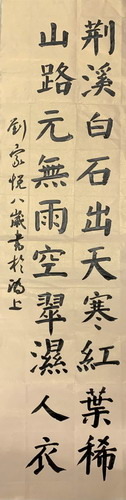 荆溪白石出天寒紅葉稀
山路元無雨空翠濕人衣
劉家悦八歲書於海上